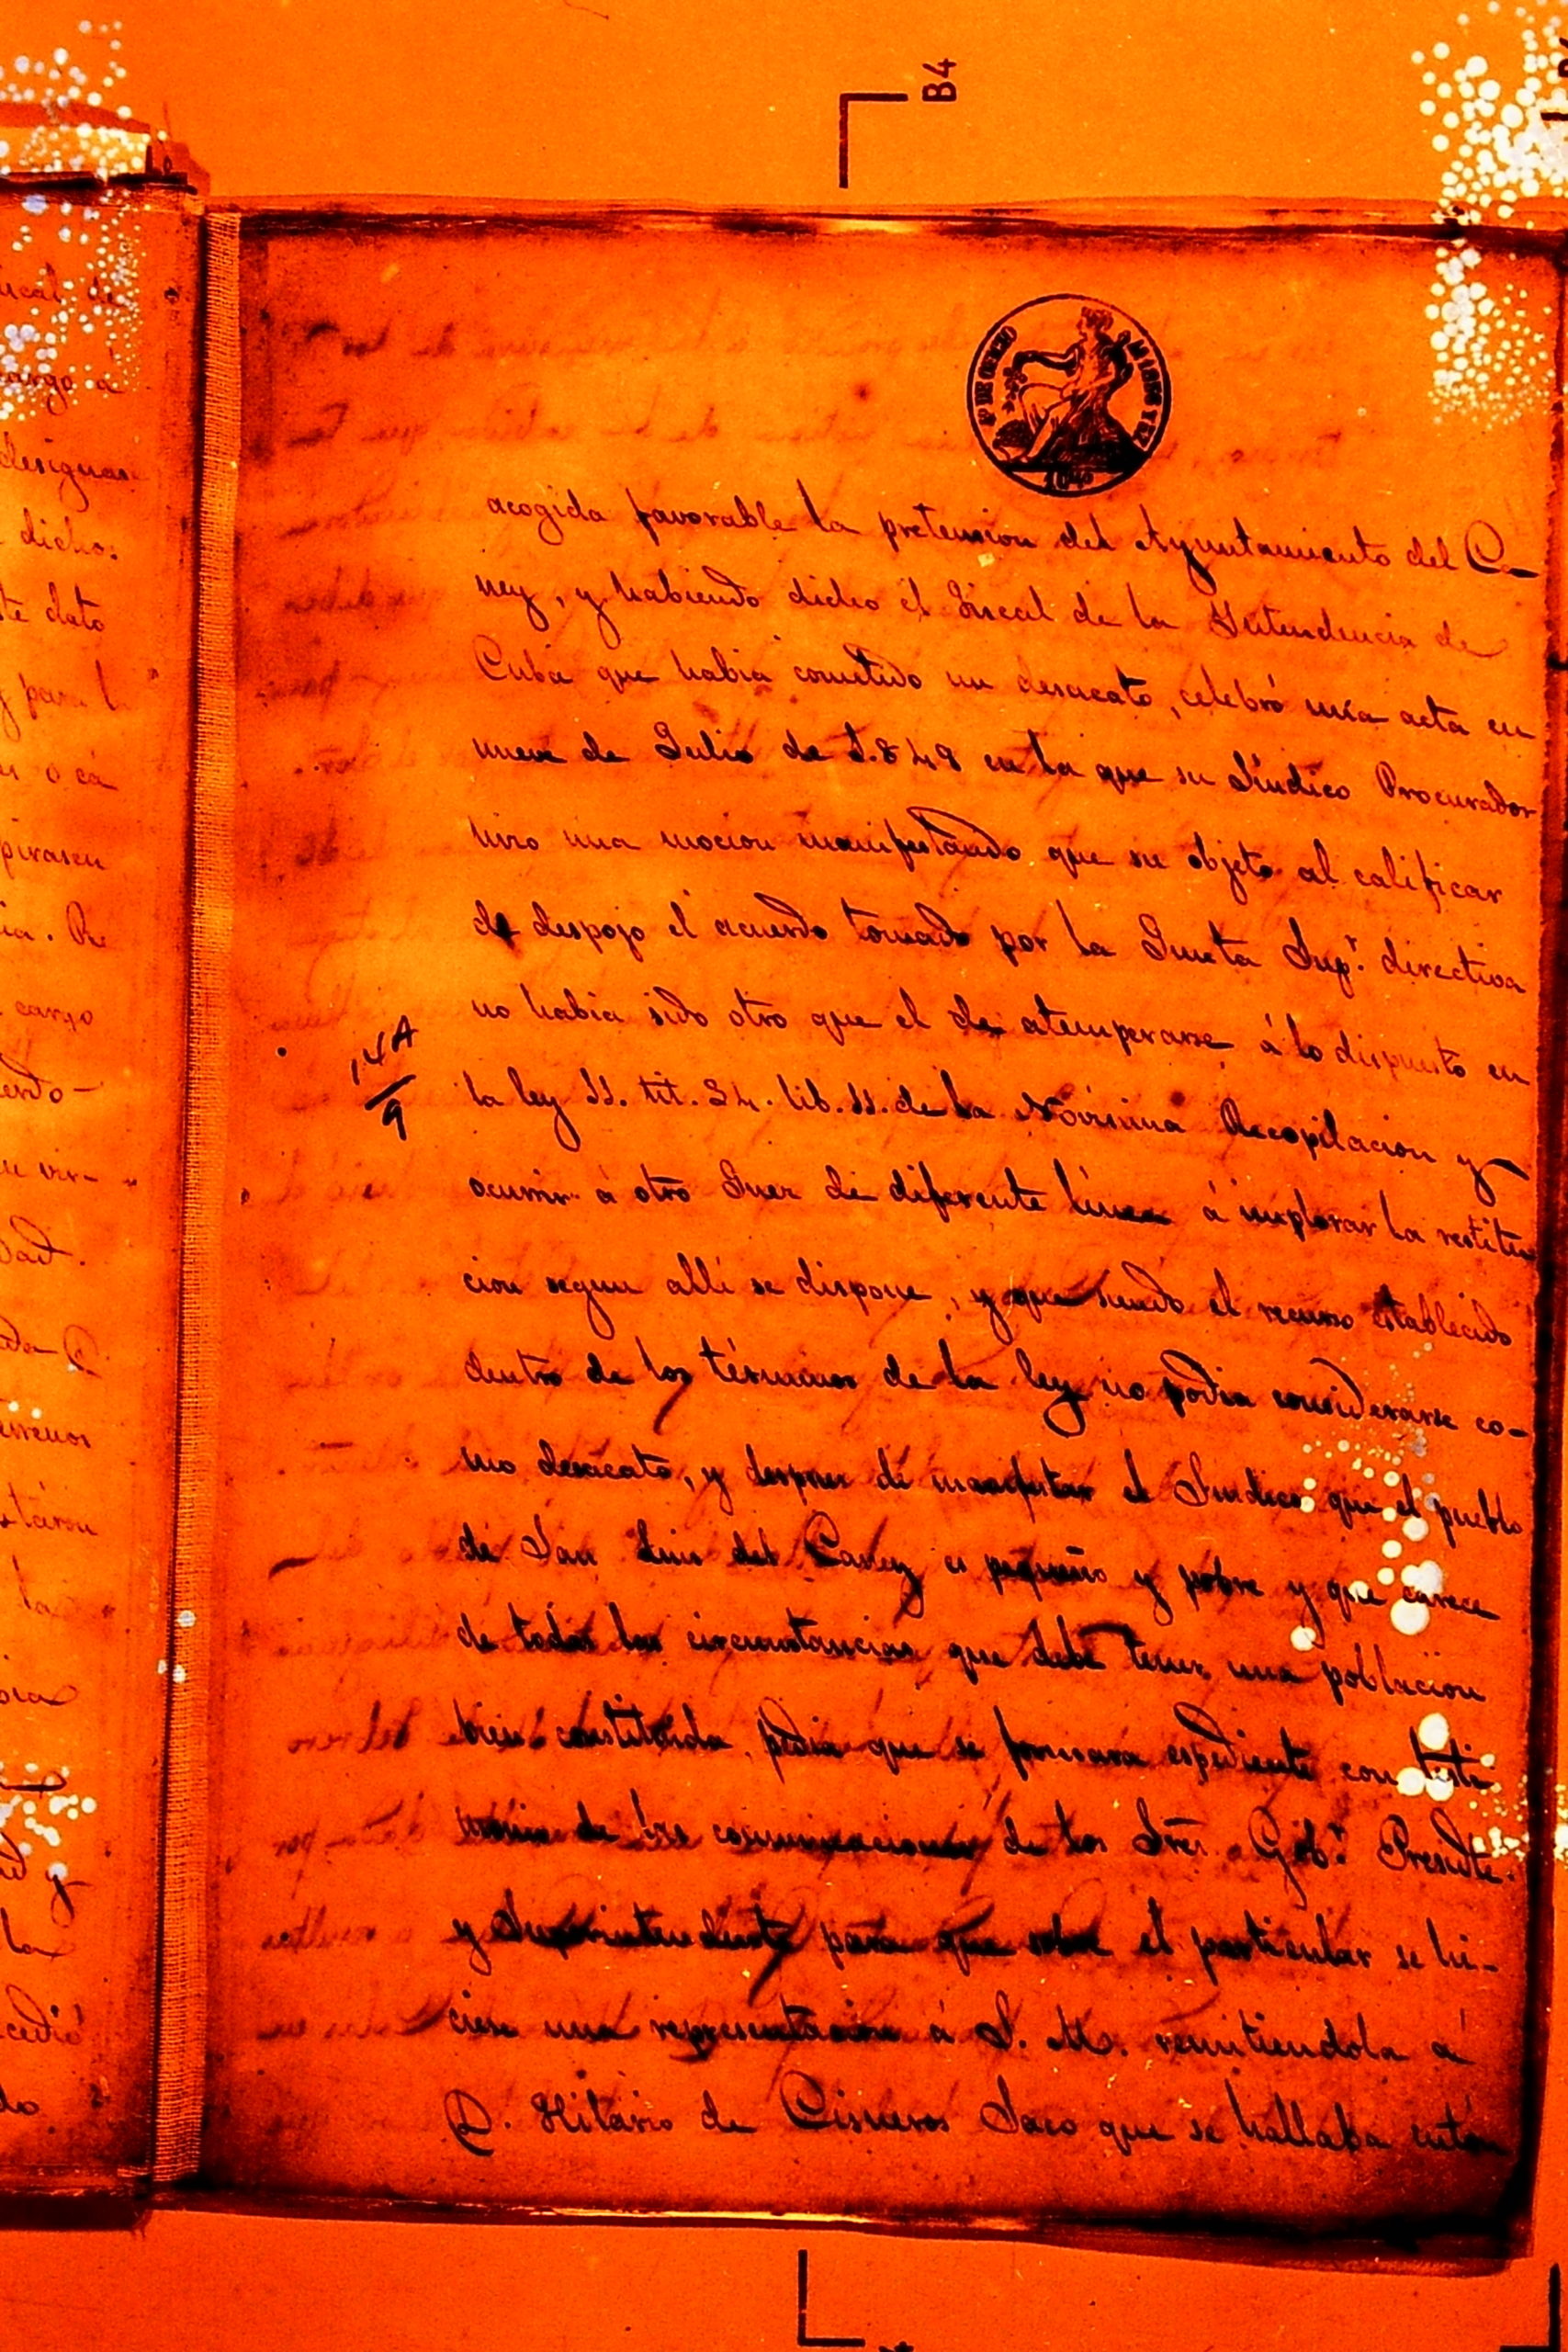 B4
acogida favorable la pretension del Ayuntamiento del Ca-
ney, y habiendo dicho el Fiscal de la Yntendencia de
Cuba que habia cometido un desacato, celebró una acta en
nueve de Julio de 1.849 en la que su Síndico Procurador
hizo una mocion manifestando que su objeto al calificar
de despojo el acuerdo tomado por la Junta Sup.r directiva
no habia sido otro que el de atemperarse á lo dispuesto en
la ley 11. tit. 34. lib. 11. de la Novisima Recopilacion y
ocurrir á otro Juez de diferente linea á implorar la restitu
cion segun allí se dispone, y que siendo el recurso establecido
dentro de los términos de la ley no podia considerarse co-
mo desacato, y despues de manifestar el Sindico que el pueblo
de San Luis del Caney es pequeño y pobre y que carece
de todas las circunstancias que debe tener una poblacion
bien constituida, pedia que se formara espediente con testi
monio de las comunicaciones de los Sres. Gob.r Presidte.
y Superintendente para que sobre el particular se hi-
ciese una representacion á S. M. remitiendola a
D. Hilario de Cisneros Saco que se hallaba entón
14A
9
ical de
cargo á
designas
dicho:
te dato
y para l
pirasen
ia. Re
cargo
erdo-
en vir-
dad.
errenos
taron
la
y
la
cedió
do